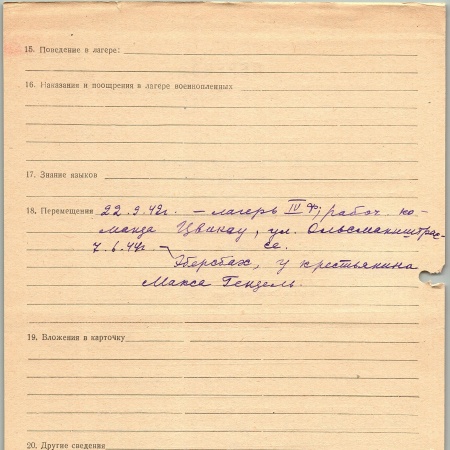 15. Поведение в лагере:
16. Наказание и поощрения в лагере военнопленных
17. Знание языков
18. Перемещения 22.9.42г. – лагерь IV Ф, рабоч. ко-
манда Цвикау, ул. Ольсмаништрас-
се.
7.6.44г – Эберсбах, у крестьянина
Макса Гензель.
19. Вложения в карточку
20. Другие сведения